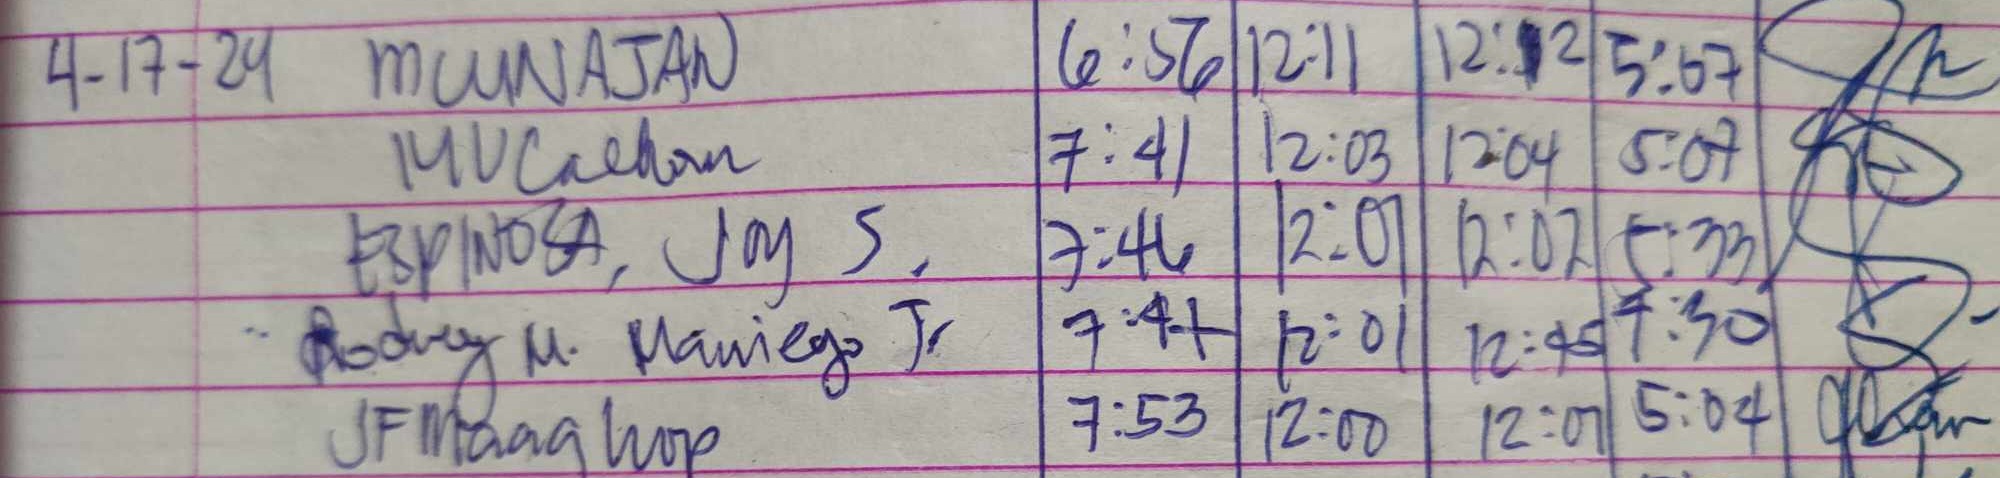 4-17-24 MUNAJAN 6:56 12:11 12:12 5:07
7:41 12:03 12:04 5:07
ESPINOSA, Joy S. 7:46 12:01 12:02 5:33
Rodney M. Maniego Jr 7:44 12:01 12:45 7:30
7:53 12:00 12:01 5:04